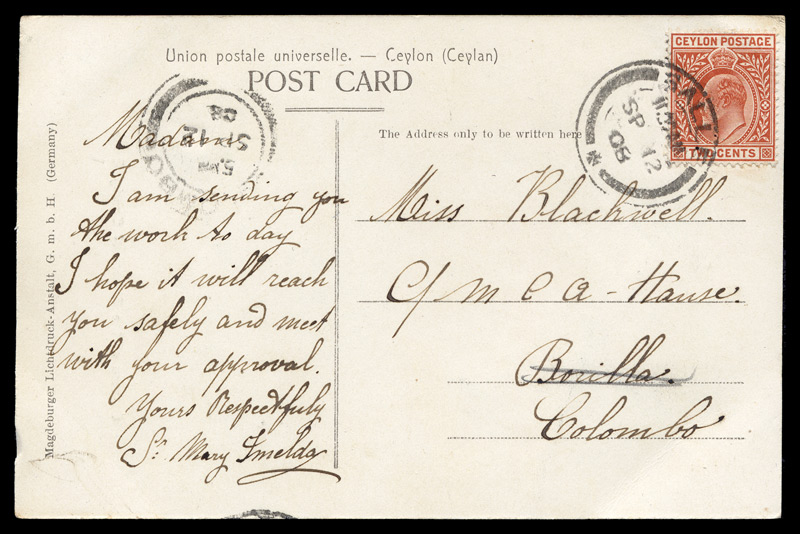 Union postale universelle. — Ceylon (Ceylan)
POST CARD
CEYLON POSTAGE
CENTS
SP 12
08
SP 12
08
Magdeburger Lichtdruck-Anstalt, G. m. b. H. (Germany)
The Address only to be written here
Madam
I am sending you
the work to day
I hope it will reach
you safely and meet
with your approval.
Yours Respectfuly
Sr. Mary Imelda
Miss Blackwell.
C/ M C A - House.
Borilla.
Colombo